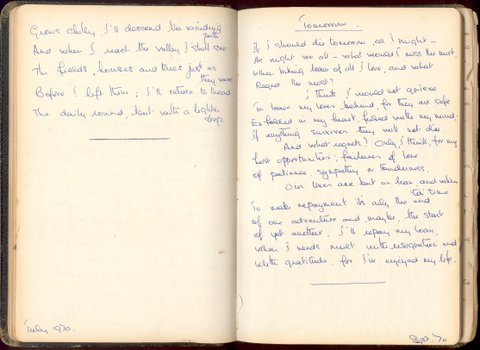 Grows chilly, I'll descend the winding
path
And when I reach the valley I shall see
The fields, houses and trees just as
they were
Before I left them; I'll return to tread
The daily round, but with a lighter
step.
July 1970.
Tomorrow.
If I should die tomorrow, as I might –
As might we all – what would I miss the most
When taking leave of all I love, and what
Regret the most?
I think I would not grieve
To leave my loves behind, for they are safe
Enfolded in my heart, for with my mind,
If anything survives they will not die.
And what regrets? Only, I think, for my
lost opportunities, failures of love
of patience, sympathy or tenderness.
Our lives are but on loan, and when
'tis time
To make repayment it's only the end
of one adventure and, maybe, the start
of yet another. I'll repay my loan,
when I needs must with resignation and
with gratitude, for I've enjoyed my life.
Sept. 70